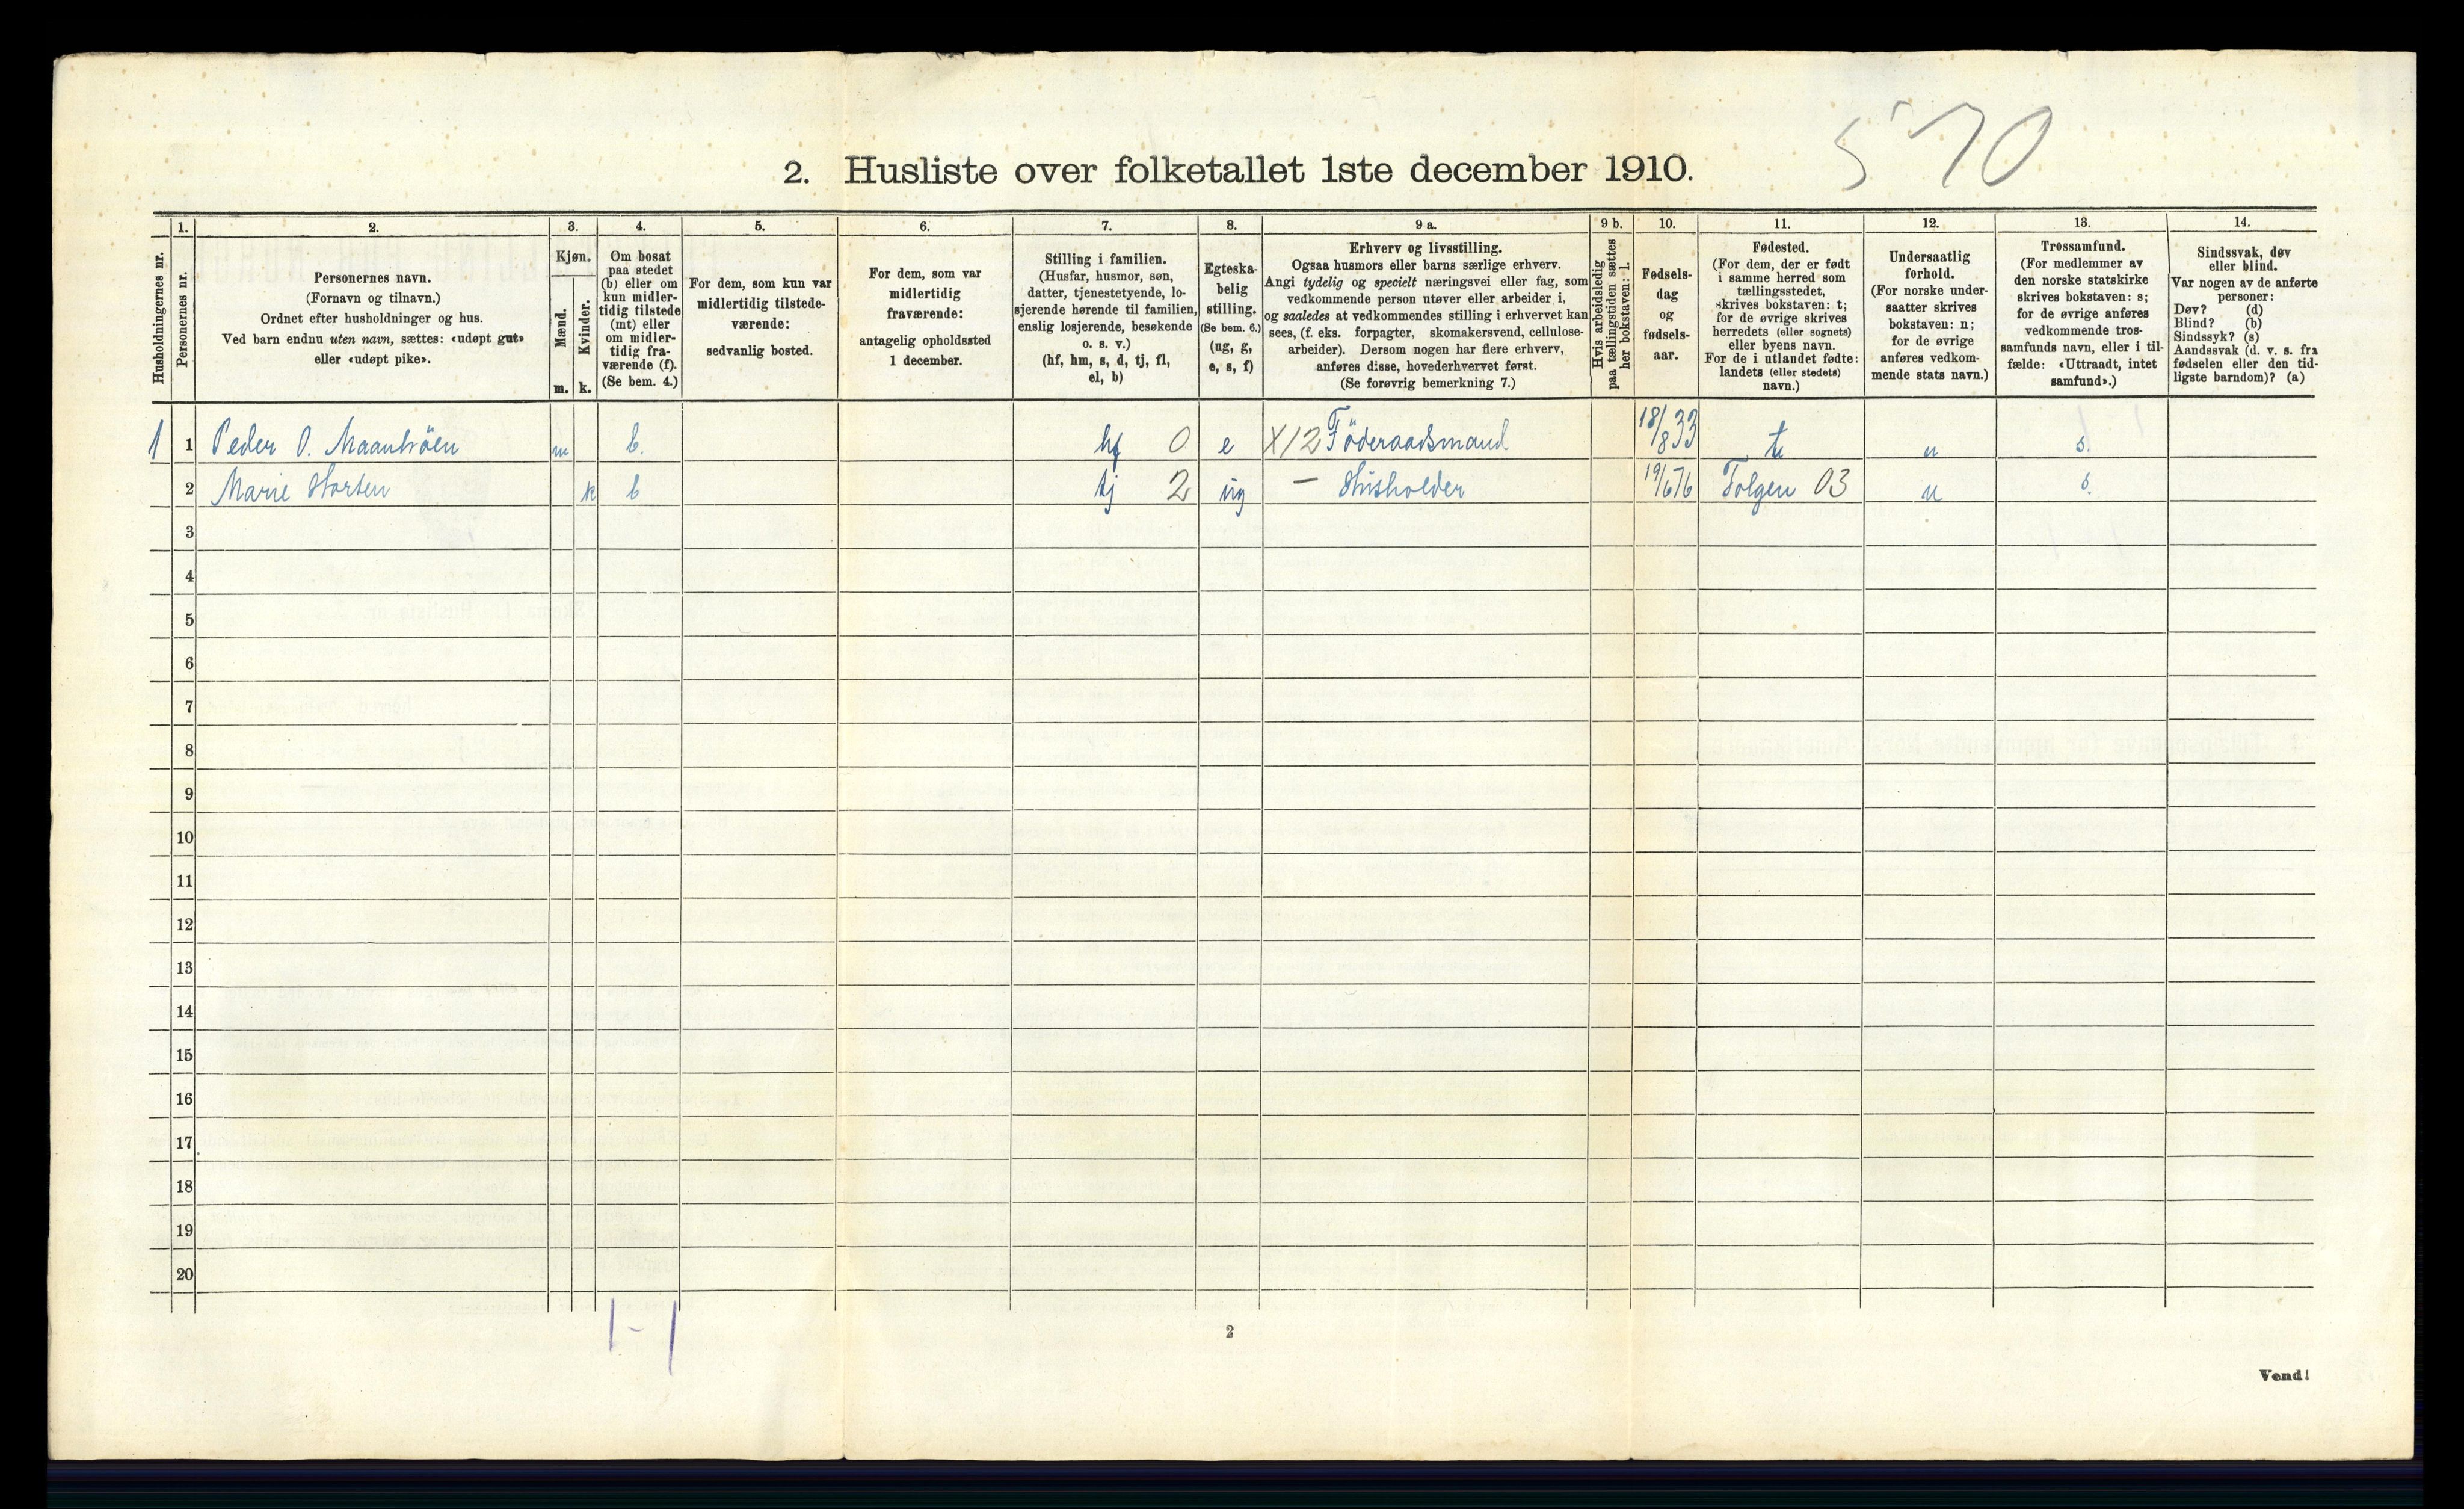 570
2. Husliste over folketallet 1ste december 1910.
Husholdningernes nr.
1.
Personernes nr.
2.
Personernes navn.
(Fornavn og tilnavn.)
Ordnet efter husholdninger og hus.
Ved barn endnu uten navn, sættes: «udøpt gut»
eller «udøpt pike».
3.
Kjøn.
Mænd.
m.
Kvinder.
k.
4.
Om bosat
paa stedet
(b) eller om
kun midler-
tidig tilstede
(mt) eller
om midler-
tidig fra-
værende (f).
(Se bem. 4.)
5.
For dem, som kun var
midlertidig tilstede-
værende:
sedvanlig bosted.
6.
For dem, som var
midlertidig
fraværende:
antagelig opholdssted
1 december.
7.
Stilling i familien.
(Husfar, husmor, søn,
datter, tjenestetyende, lo-
sjerende hørende til familien,
enslig losjerende, besøkende
o. s. v.)
(hf, hm, s, d, tj, fl,
el, b)
8.
Egteska-
belig
stilling.
(Se bem. 6.)
(ug, g,
e, s, f)
9 a.
Erhverv og livsstilling.
Ogsaa husmors eller barns særlige erhverv.
Angi tydelig og specielt næringsvei eller fag, som
vedkommende person utøver eller arbeider i,
og saaledes at vedkommendes stilling i erhvervet kan
sees, (f. eks. forpagter, skomakersvend, cellulose-
arbeider). Dersom nogen har flere erhverv,
anføres disse, hovederhvervet først.
(Se forøvrig bemerkning 7.)
9 b.
Hvis arbeidsledig
paa tællingstiden sættes
her bokstaven: l.
10.
Fødsels-
dag
og
fødsels-
aar.
11.
Fødested.
(For dem, der er født
i samme herred som
tællingsstedet,
skrives bokstaven: t;
for de øvrige skrives
herredets (eller sognets)
eller byens navn.
For de i utlandet fødte:
landets (eller stedets)
navn.)
12.
Undersaatlig
forhold.
(For norske under-
saatter skrives
bokstaven: n;
for de øvrige
anføres vedkom-
mende stats navn.)
13.
Trossamfund.
(For medlemmer av
den norske statskirke
skrives bokstaven: s;
for de øvrige anføres
vedkommende tros-
samfunds navn, eller i til-
fælde: «Uttraadt, intet
samfund».)
14.
Sindssvak, døv
eller blind.
Var nogen av de anførte
personer:
Døv? (d)
Blind? (b)
Sindssyk? (s)
Aandssvak (d. v. s. fra
fødselen eller den tid-
ligste barndom)? (a)
1 1 Peder O. m b. hf 0 e X12 Föderaadsmand 18/8 33 t n s.
2 Marie Horten k b tj 2 ug — Husholder 19/6 76 Tolgen 03 n s.
3
4
5
6
7
8
9
10
11
12
13
14
15
16
17
18
19
20
1-1
2
Vend!